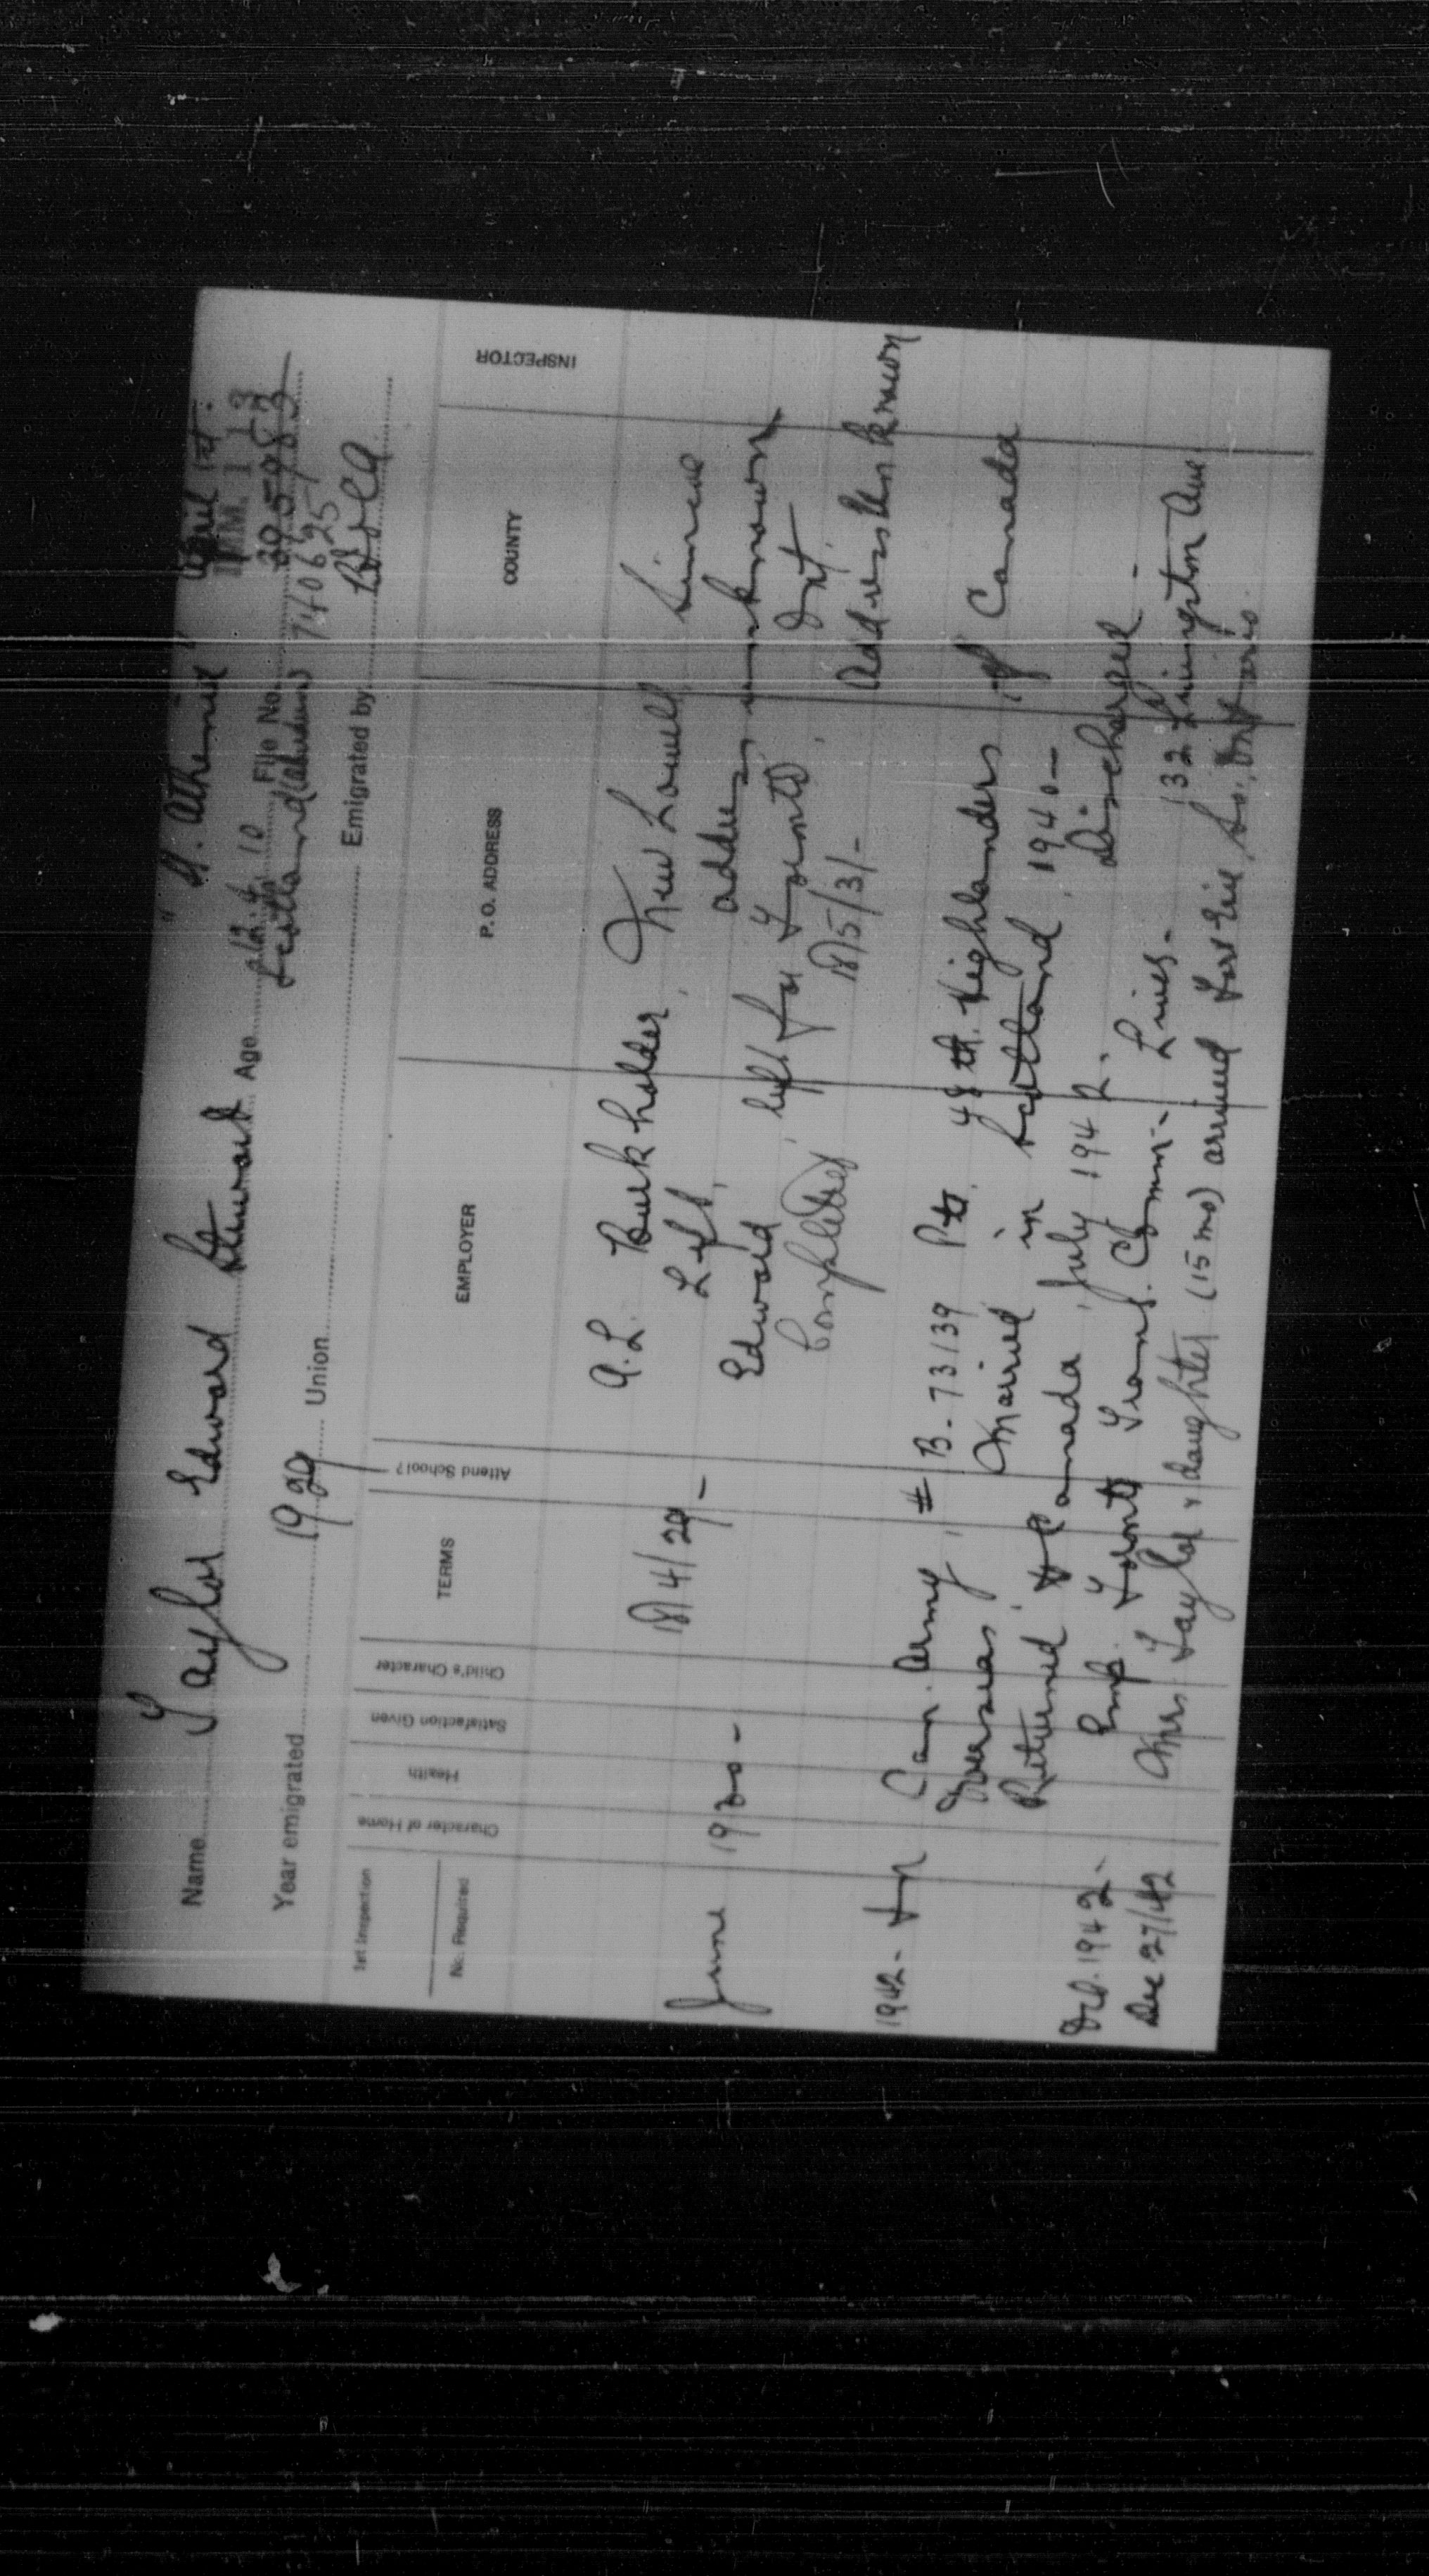 "S.S. Athenia" April 1st.
Name Taylor Edward Stewart Age 10 File No. 205983
IMM. 1 13
Scotland (Aberdeen) 740625
Year emigrated 1929 Union Emigrated by
1st Inspection
No. Required
Character of Home
Health
Satisfaction Given
Child's Character
TERMS
Attend School?
EMPLOYER
P. O. ADDRESS
COUNTY
INSPECTOR
18/4/29 - A. L. Burkholder, New Lowell
June 1930 - Left, address unknown since
Edward left for Toronto, Ont.
Completed 18/5/31 - Address Unknown
1942 - Can. Army, # B-73139 Pte. 48th Highlanders of Canada
Overseas, Married in Scotland, 1940 -
Returned to Canada, July 1942. Discharged -
Oct. 1942 - Emp. Toronto Trans. Comm. - Lives - 132 Livingston Ave
Dec 27/42 Mrs. Taylor & daughter (15 mo) arrived Fort Erie, So., Ontario.